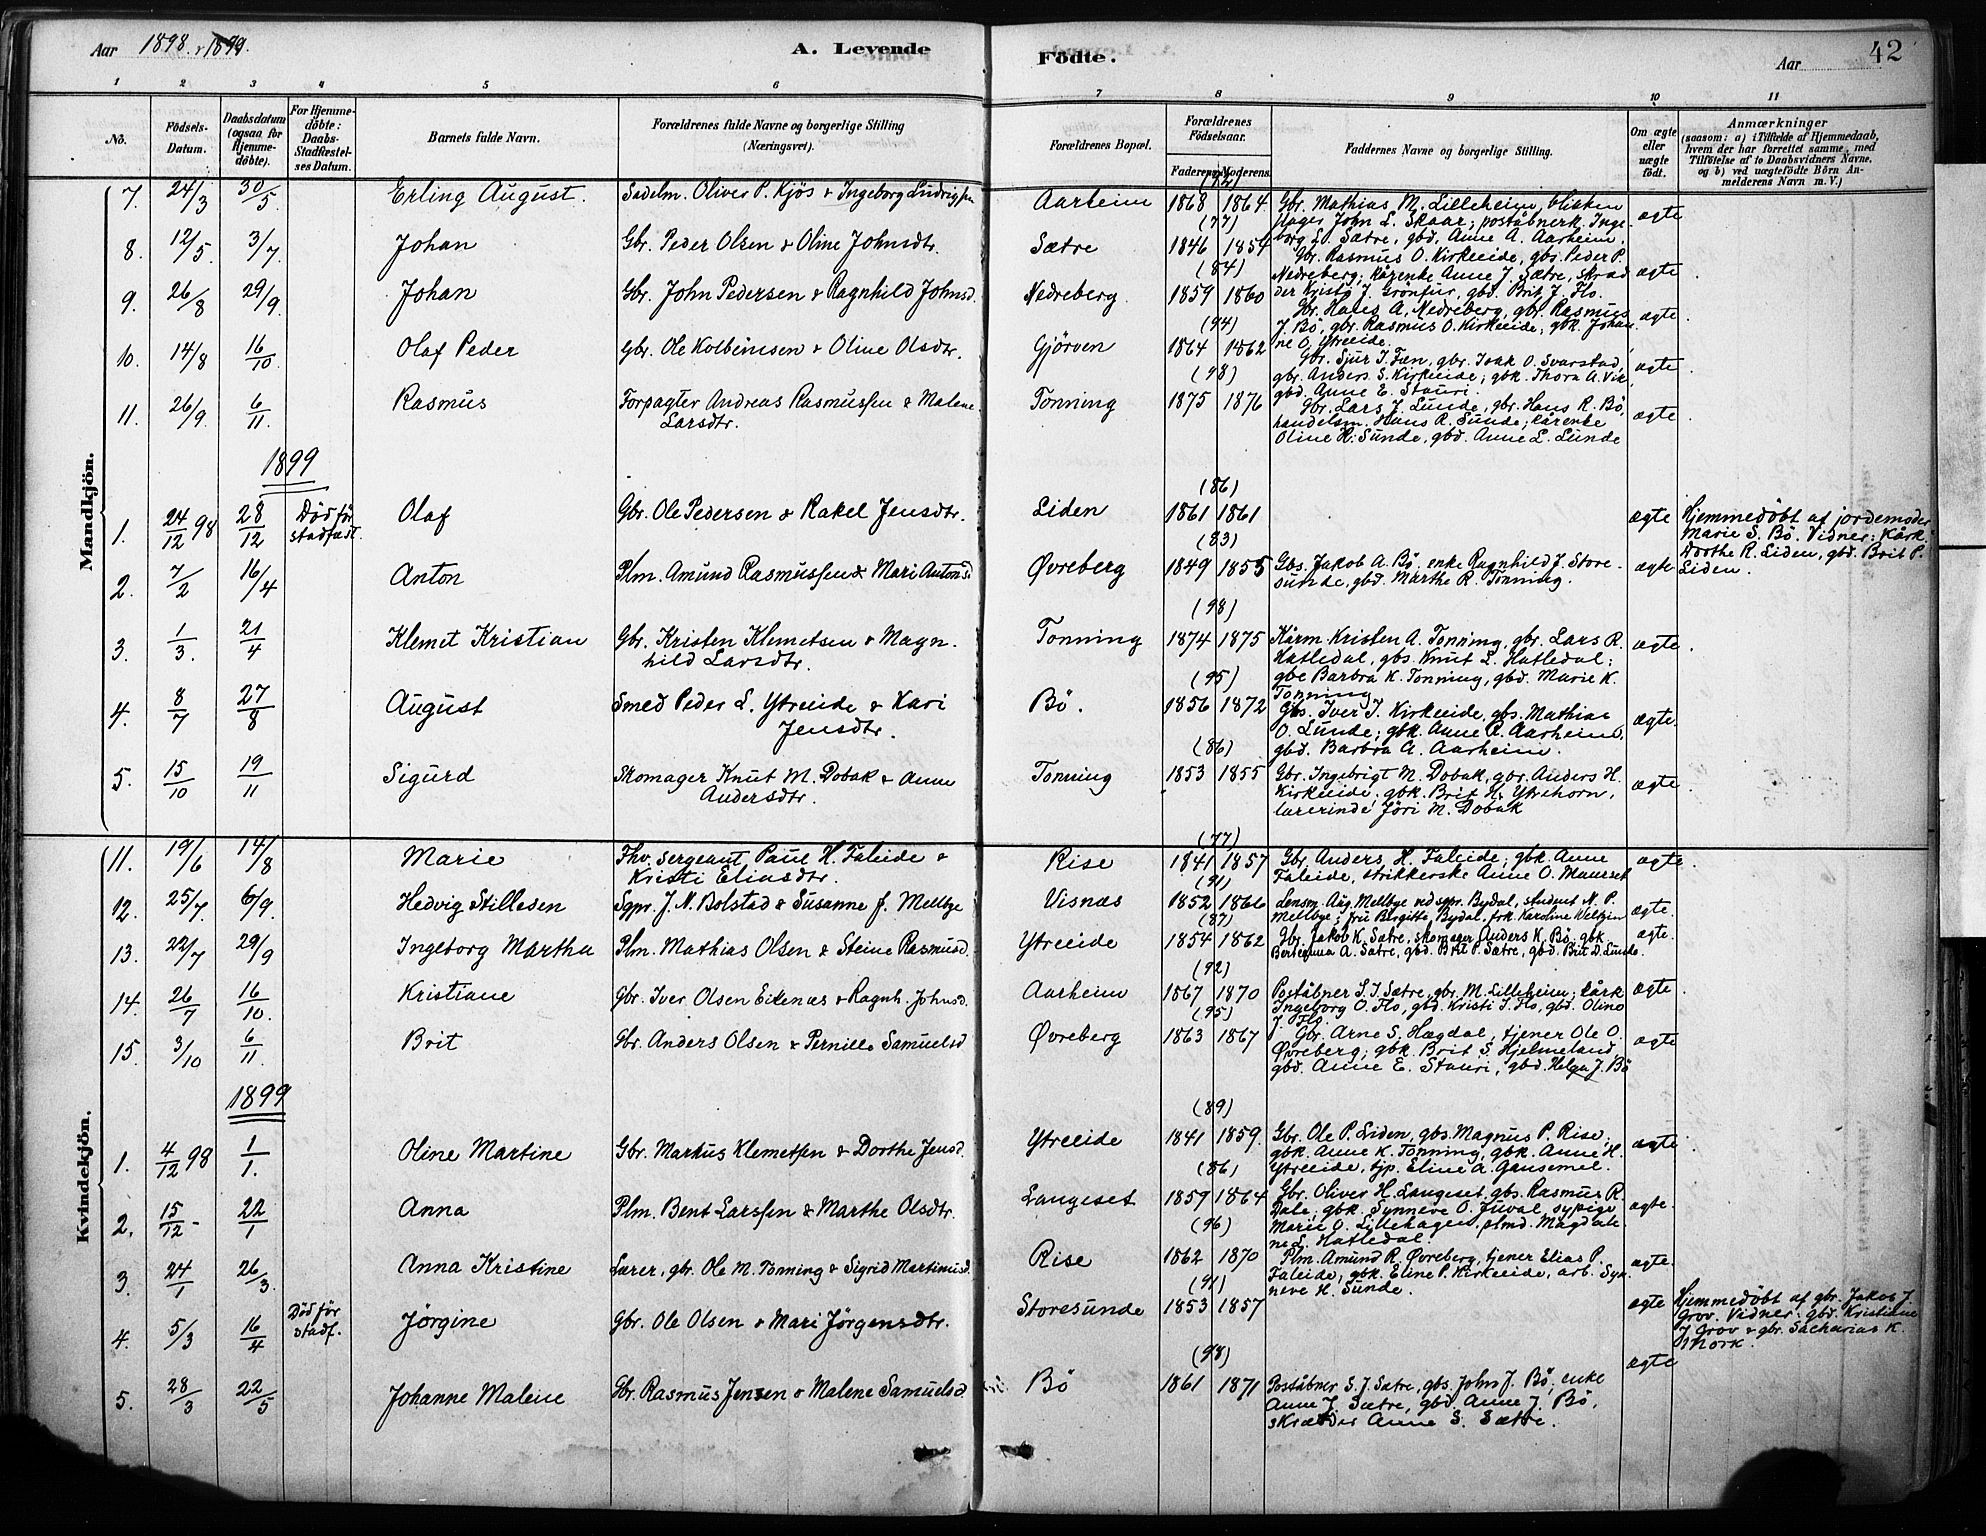 Aar 1898 & 1899.
A. Levende Födte.
Aar 42
1 2 3 4 5 6 7 8 9 10 11
No.
Födsels-Datum.
Daabsdatum (ogsaa for Hjemme-döbte).
For Hjemme-döbte: Daabs-Stadfæstel-ses Datum.
Barnets fulde Navn.
Forældrenes fulde Navne og borgerlige Stilling (Næringsvei).
Forældrenes Bopæl.
Forældrenes Födselsaar.
Faderens. Moderens.
Faddernes Navne og borgerlige Stilling.
Om ægte eller uægte födt.
Anmærkninger (saasom: a) i Tilfælde af Hjemmedaab, hvem der har forrettet samme, med Tilföielse af to Daabsvidners Navne, og b) ved uægtefödte Börn An-melderens Navn m. V.)
Mandkjön.
7. 24/3 30/5. Erling August. Sadelm. Oliver P. Kjös & Ingeborg Ludvigsen Aarheim (92) 1868 1864 Gbr. Mathias M. Lilleheim, blikken
slager John L. Skaar; poståbnerk. Inge-
borg L. Sætre, gbd. Anne A. Aarheim. ægte
8. 12/5. 3/7. Johan Gbr. Peder Olsen & Oline Johnsdtr. Sætre (77) 1846 1854 Gbr. Rasmus O. Kirkeeide, gbr. Peder P.
Nedreberg; kårenke Anne J. Sætre, skræd
der Kristi J. Grönfur, gbd. Brit J. Flo. ægte.
9. 26/8 29/9. Johan Gbr. John Pedersen & Ragnhild Johnsd. Nedreberg. (84) 1859 1860 Gbr. Hans A. Nedreberg, gbr. Rasmus
J. Bö, gbr. Rasmus O. Kirkeeide, gbk. Johan
ne O. Ytreeide. ægte.
10. 14/8 16/10. Olaf Peder Gbr. Ole Kolbeinsen & Oline Olsdtr. Gjörven (94) 1864 1862 Gbr. Sjur I. Fæn, gbr. Isak O. Svarstad,
gbr. Anders S. Kirkeeide; gbk. Thora A. Vik,
gbd. Anne E. Stauri. ægte
11. 26/9. 6/11. Rasmus Forpagter Andreas Rasmussen & Malene
Larsdtr. Tonning (98) 1875 1876 Gbr. Lars J. Lunde, gbr. Hans R. Bö,
handelsm. Hans R. Sunde; kårenke
Oline H. Sunde, gbd. Anne L. Lunde ægte
1899
1. 24/12 98 28/12 Död før stadfæst. Olaf Gbr. Ole Pedersen & Rakel Jensdtr. Liden (86) 1861 1861 ægte Hjemmedöbt af jordemoder
Marie S. Bö. Vidner: Kårk.
Dorthe R. Liden, gbd. Brit P.
Liden.
2. 7/2 16/4 Anton Plm. Amund Rasmussen & Mari Antonsd Øvreberg (83) 1849 1855 Gbs. Jakob A. Bö, enke Ragnhild J. Store-
sunde, gbd. Marthe R. Tonning. ægte
3. 1/3. 21/4 Klemet Kristian Gbr. Kristen Klemetsen & Magn-
hild Larsdtr. Tonning (98) 1874 1875 Kårm. Kristen A. Tonning, gbr. Lars R.
Hatledal, gbs. Knut L. Hatledal;
gbe Barbra K. Tonning, gbd. Marie K.
Tonning ægte.
4. 8/7 27/8 August Smed Peder L. Ytreeide & Kari
Jensdtr. Bö. (95) 1856 1872 Gbs. Iver I. Kirkeeide, gbs. Mathias
O. Lunde; gbk. Anne R. Aarheim,
gbd. Barbra A. Aarheim. ægte.
5. 15/10 19/11 Sigurd Skomager Knut M. Dobak & Anne
Andersdtr. Tonning (86) 1853 1855 Gbr. Ingebrigt M. Dobak, gbr. Anders H.
Kirkeeide; gbk. Brit H. Ytrehorn,
lærerinde Jöri M. Dobak ægte.
Kvindekjön.
11. 19/6 14/8 Marie Fhv. sergeant Paul H. Faleide &
Kristi Eliasdtr. Rise (77) 1841 1857 Gbr. Anders H. Faleide; gbk. Anne
Faleide, strikkerske Anne O. Maurset ægte
12. 25/7. 6/9. Hedvig Stillesen Sgpr. J. N. Bolstad & Susanne f. Mellbye Visnæs (91) 1852 1866 Lensm. Aug. Mellbye ved sgpr. Bydal, student N. P.
Mellbye; fru Birgitte Bydal, frk. Karoline Weltzin ægte.
13. 22/7 29/9 Ingeborg Martha Plm. Mathias Olsen & Steine Rasmusd. Ytreeide (87) 1854 1862 Gbr. Jakob K. Sætre, skomager Anders K. Bö, gbk.
Berteanna A. Sætre, gbd. Brit P. Sætre, gbd. Brit D. Lunde. ægte.
14. 26/7 16/10. Kristiane Gbr. Iver Olsen Eikenæs & Ragnh. Johnsd. Aarheim (92) 1867 1870 Poståbner S. J. Sætre, gbr. M. Lilleheim; kårk
Ingeborg O. Flo, gbd. Kristi J. Flo, gbd. Oline
J. Flo. ægte.
15. 3/10 6/11. Brit Gbr. Anders Olsen & Pernille Samuelsd Øvreberg (95) 1863 1867 Gbr. Arne S. Hægdal, tjener Ole O.
Øvreberg; gbk. Brit S. Hjelmeland,
gbd. Anne E. Stauri, gbd. Helga J. Bö ægte
1899
1. 4/12 98 1/1. Oline Martine Gbr. Markus Klemetsen & Dorthe Jensd. Ytreeide (89) 1841 1859. Gbr. Ole P. Liden, gbs. Magnus P. Rise,
gbk. Anne K. Tonning, gbk. Anne H.
Ytreeide, tjp. Eline A. Gausemel. ægte
2. 15/12 - 22/1 Anna Plm. Bent Larssen & Marthe Olsdtr. Langeset (86) 1859 1864 Gbr. Oliver H. Langeset, gbs. Rasmus R.
Dale; gbk. Synneve O. Juval, sypige
Marie O. Lillehagen, plmd. Magdale-
ne L. Hatledal. ægte.
3. 24/1 26/3. Anna Kristine Lærer, gbr. Ole M. Tonning & Sigrid Martinusd. Rise (96) 1862 1870 Plm. Amund R. Øvreberg, tjener Elias P.
Faleide; gbk. Eline P. Kirkeeide, arb. Syn-
neve H. Sunde. ægte.
4. 5/3 16/4 Död før stadf. Jørgine Gbr. Ole Olsen & Mari Jørgensdtr. Storesunde (91) 1853 1857 ægte Hjemmedöbt af gbr. Jakob J.
Grov. Vidner: gbd. Kristiane
J. Grov & gbr. Sacharias K.
Mork.
5. 28/3 22/5 Johanne Malene Gbr. Rasmus Jensen & Malene Samuelsd Bö (98) 1861 1871 Poståbner S. J. Sætre, gbs. John J. Bö; enke
Anne J. Sætre, gbd. Anne J. Bö,
skrædder Anne S. Sætre. ægte